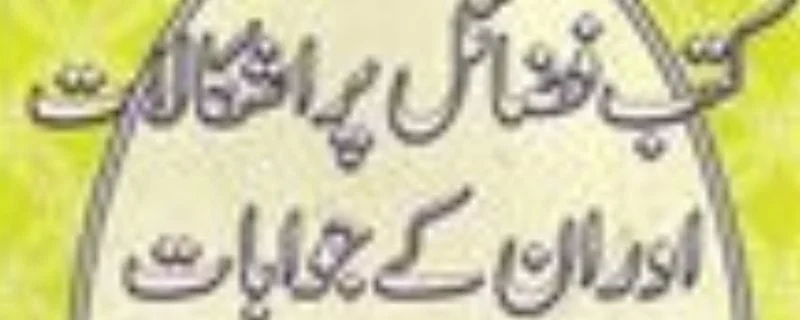 کتب فضائل پر اشکالات
اور ان کے جوابات